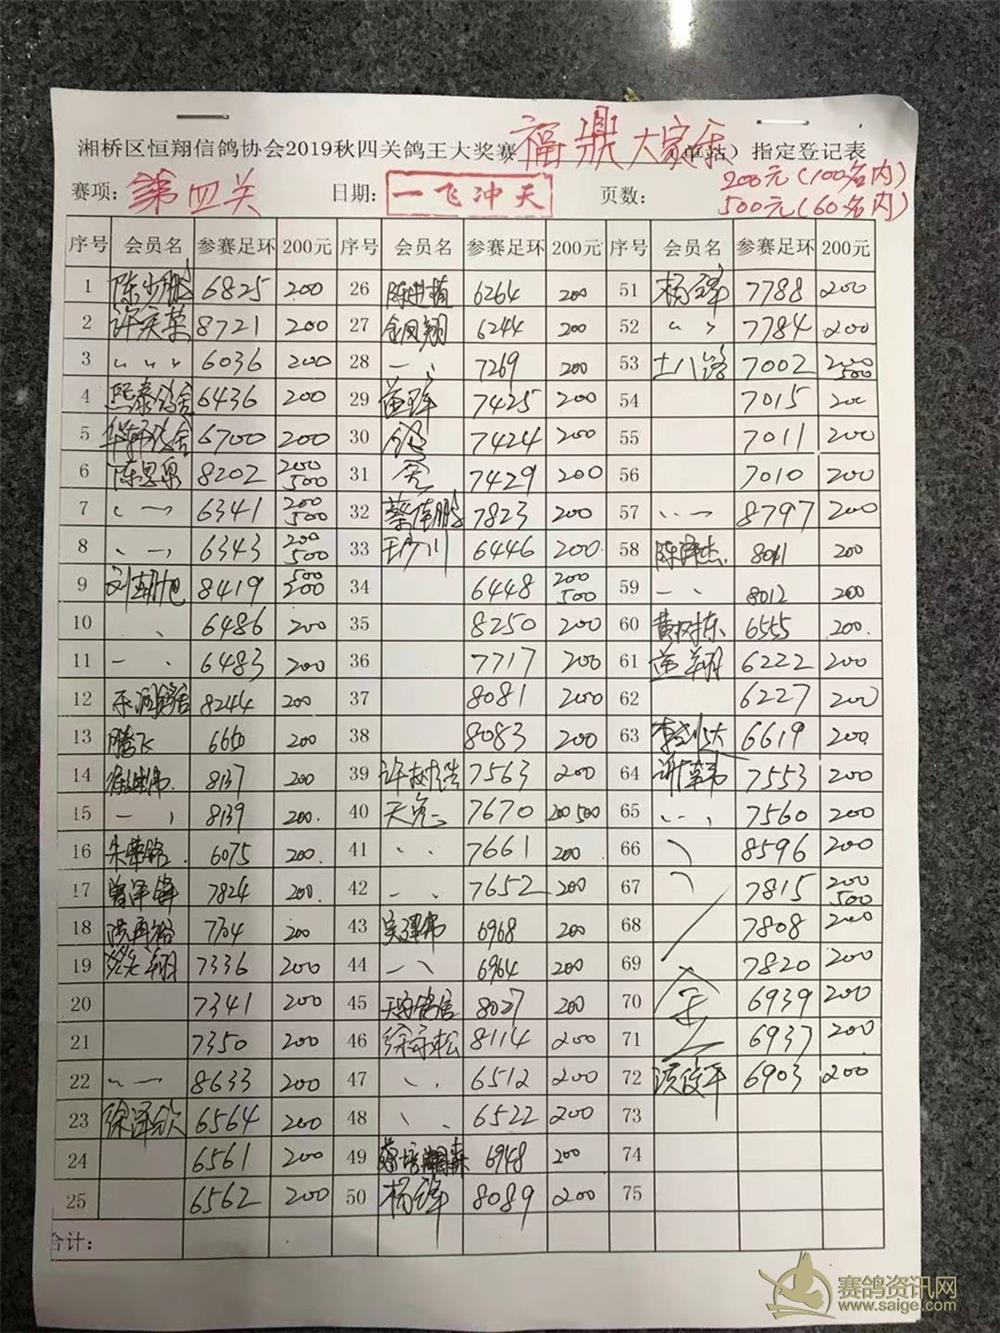 湘桥区恒翔信鸽协会2019秋四关鸽王大奖赛 福鼎大家乐 单站）指定登记表
赛项：第四关 日期：一飞冲天 页数： 200元(100名内)
500元(60名内)
序号 会员名 参赛足环 200元 序号 会员名 参赛足环 200元 序号 会员名 参赛足环 200元
1 陈少鹏 6825 200 26 6264 200 51 杨锋 7788 200
2 许庆荣 8721 200 27 金凤翔 6244 200 52 〃 7784 200
3 〃 〃 6036 200 28 7269 200 53 土八路 7002 200 500
4 熙泰鸽舍 6436 200 29 7425 200 54 7015 200
5 华轩鸽舍 6700 200 30 7424 200 55 7011 200
6 8202 200 500 31 7429 200 56 7010 200
7 6341 200 500 32 蔡伟鹏 7823 200 57 8797 200
8 6343 200 500 33 王少川 6446 200 58 陈泽杰 8011 200
9 刘朝旭 8419 500 200 34 6448 200 500 59 8012 200
10 6486 200 35 8250 200 60 黄树东 6555 200
11 6483 200 36 7717 200 61 6222 200
12 8244 200 37 8081 200 62 6227 200
13 腾飞 6660 200 38 8083 200 63 6619 200
14 8137 200 39 许树浩 7563 200 64 7553 200
15 8139 200 40 7670 200 500 65 7560 200
16 6075 200 41 7661 200 66 8596 200
17 曾泽锋 7824 200 42 7652 200 67 7815 200 500
18 7704 200 43 吴泽伟 6968 200 68 7808 200
19 7336 200 44 6964 200 69 7820 200
20 7341 200 45 8027 200 70 6939 200
21 7350 200 46 徐永松 8114 200 71 6937 200
22 8633 200 47 6512 200 72 6903 200
23 徐泽欣 6564 200 48 6522 200 73
24 6561 200 49 6948 200 74
25 6562 200 50 杨锋 8089 200 75
合计：
赛鸽资讯网
www.saigel.com